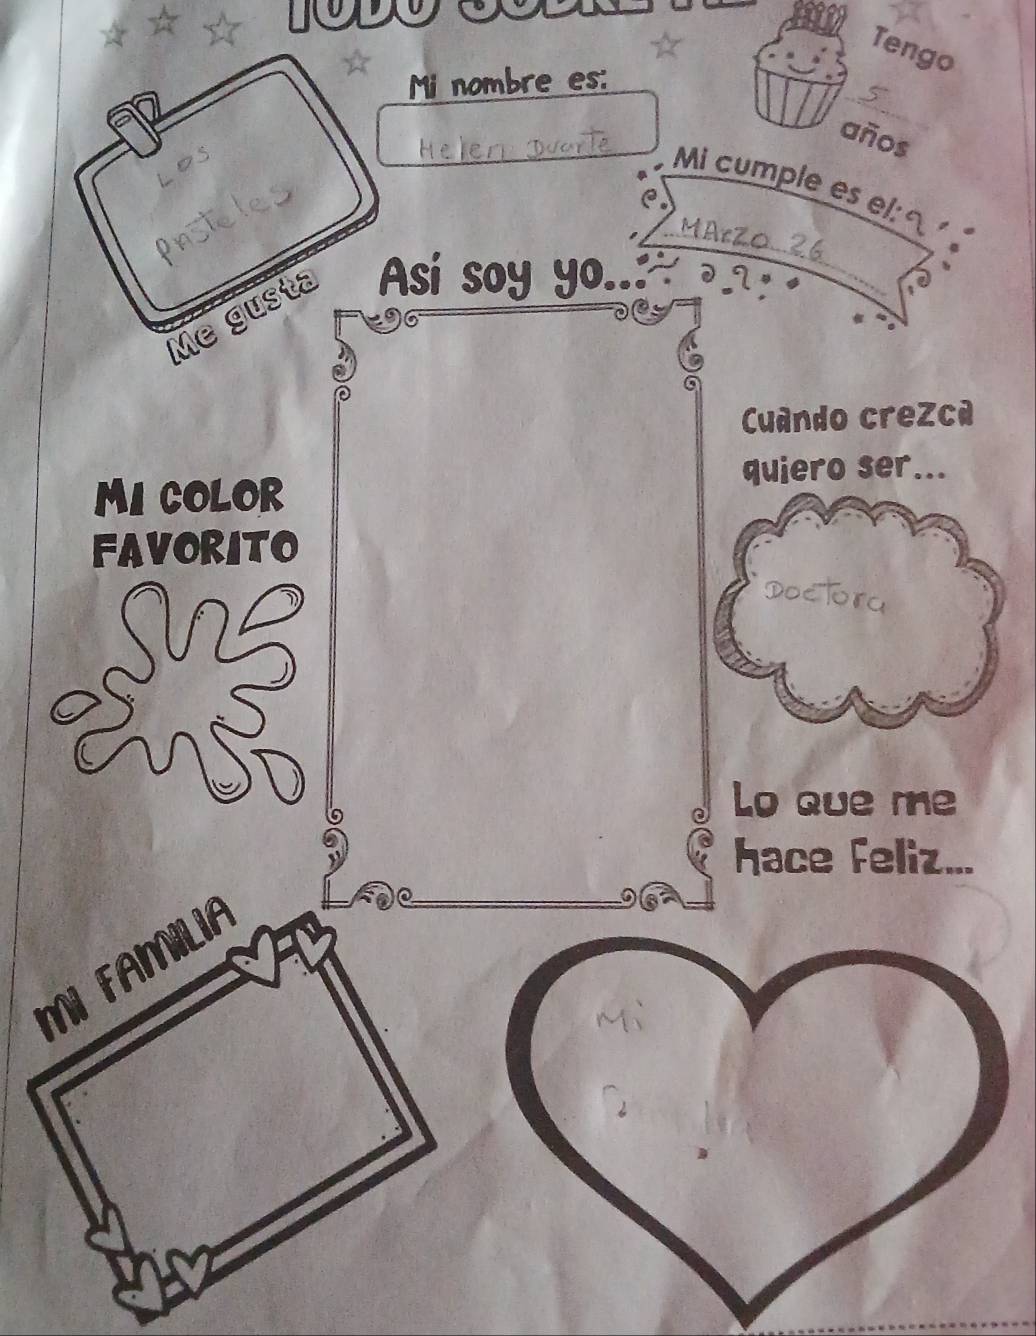 TODO SOBRE MI
Tengo
5
años
Mi nombre es:
Helen Duarte
Mi cumple es el:
MArzo 26
Los
pasteles
Me gusta
Así soy yo...
Cuando crezca
quiero ser...
Doctora
MI COLOR
FAVORITO
Lo que me
hace feliz...
Mi
MI FAMILIA